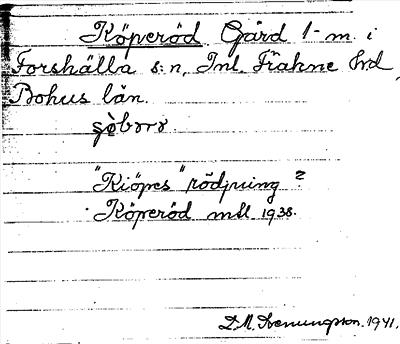 Köperöd Gård 1-m. i
Forshälla s:n, Inl. Fräkne hrd
Bohus län.
"Kiöpes" rödjning ?
Köperöd msl 1938.
D.M. 1941.